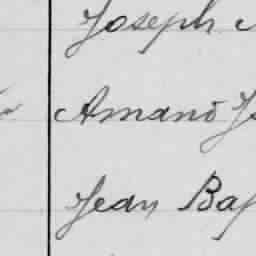 Joseph
Amand
Jean Bap